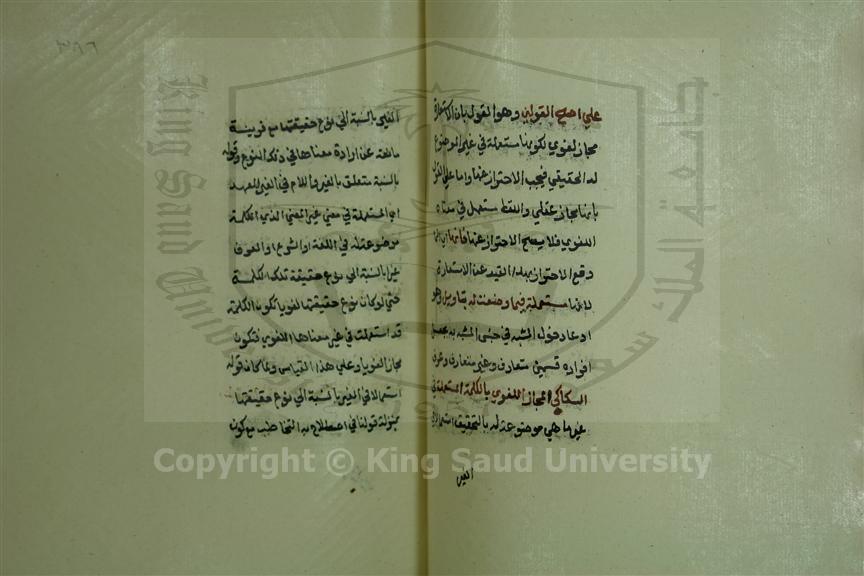 علي اصح القولين وهو القول بان الاستعارة
مجاز لغوي لكونها مستعملة في غير الموضوع
له الحقيقي فيجب الاحتراز عنها واما علي القول
بانها مجاز عقلي واللفظ مستعمل في معناه
اللغوي فلا يصح الاحتراز عنها فانها اي انما
وقع الاحتراز بهذا القيد عن الاستعارة
لانها مستعملة فيما وضعت له بتاويل وهو
ادعاء دخول المشبه في جنس المشبه به بجعل
افراده قسمين متعارف وغير متعارف وعرف
السكاكي المجاز اللغوي بالكلمة المستعملة في
غير ما هي موضوعة له بالتحقيق استعمالا في
الغير
٣٨٦
الغير بالنسبة الي نوع حقيقتها مع قرينة
مانعة عن ارادة معناها في ذلك النوع وقوله
بالنسبة متعلق بالغير واللام في الغير للعهد
اي المستعملة في معني غير المعني الذي الكلمة
موضوعة له في اللغة او الشرع او العرف
غيرا بالنسبة الي نوع حقيقة تلك الكلمة
حتي لو كان نوع حقيقتها لغويا تكون الكلمة
قد استعملت في غير معناها اللغوي فتكون
مجازا لغويا وعلي هذا القياس ولما كان قوله
استعمالا في الغير بالنسبة الي نوع حقيقتها
بمنزلة قولنا في اصطلاح به التخاطب مع كون
جامعة الملك سعود
King Saud University
Copyright © King Saud University